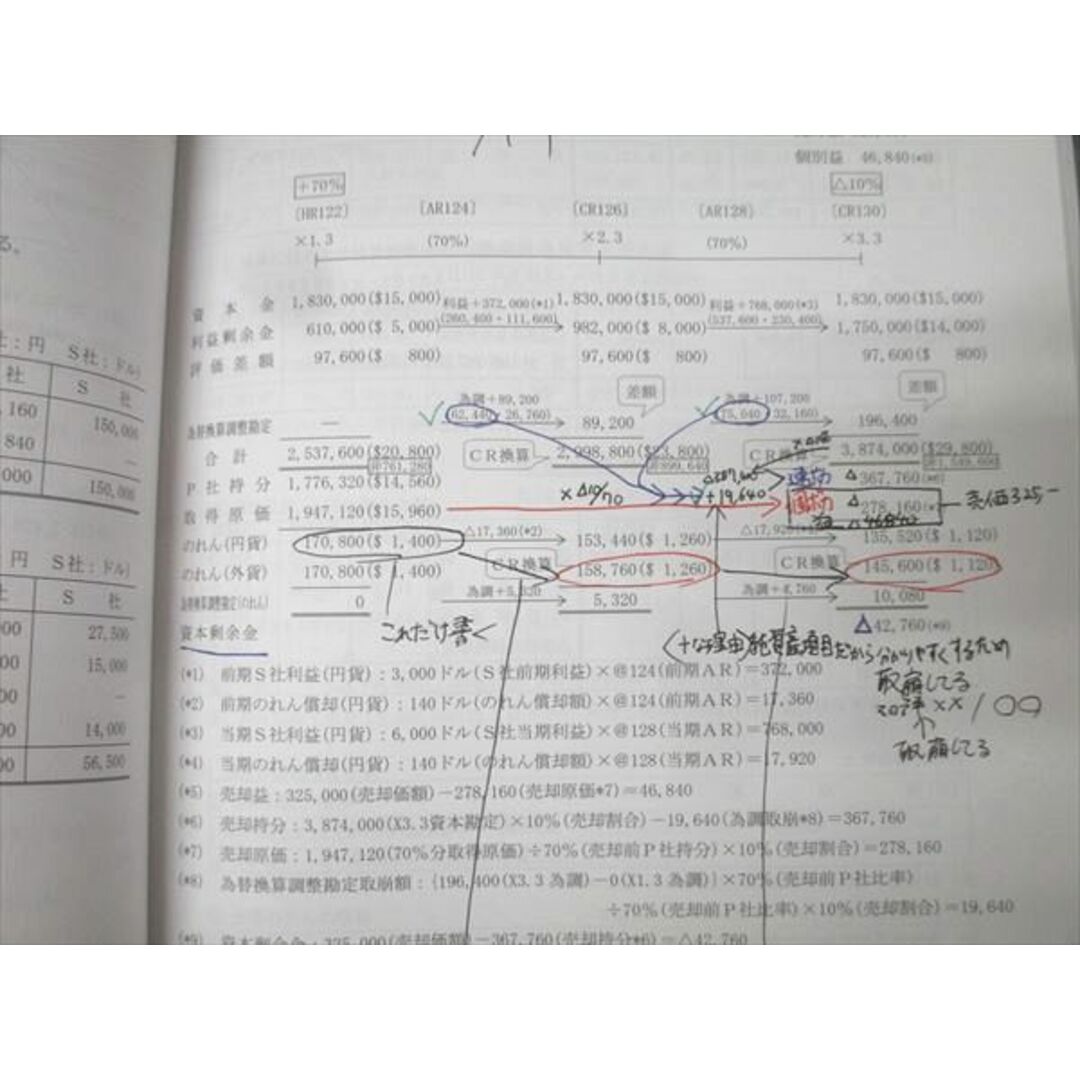 個別益 46,840(*5)
+70% △10%
(HR122) (AR124) (CR126) (AR128) (CR130)
×1.3 (70%) ×2.3 (70%) ×3.3
資本金 1,830,000($15,000) 利益+372,000(*1) 1,830,000($15,000) 利益+768,000(*3) 1,830,000($15,000)
利益剰余金 610,000($ 5,000) (260,400・111,600) 982,000($ 8,000) (537,600・230,400) 1,750,000($14,000)
評価差額 97,600($ 800) 97,600($ 800) 97,600($ 800)
差額 差額
為調+89,200 為調+107,200
為替換算調整勘定 — (62,440・26,760) 89,200 (75,040・32,160) 196,400
合計 2,537,600($20,800) CR換算 2,998,800($23,800) CR換算 3,874,000($29,800)
非761,280 非899,640
P社持分 1,776,320($14,560) +19,640 △367,760(*6)
取得原価 1,947,120($15,960) ×△10/70 △278,160(*7) 売価325,-
のれん(円貨) 170,800($ 1,400) △17,360(*2) 153,440($ 1,260) △17,920 135,520($ 1,120)
のれん(外貨) 170,800($ 1,400) CR換算 158,760($ 1,260) CR換算 145,600($ 1,120)
為替換算調整勘定(のれん) 0 為調+5,320 5,320 為調+4,760 10,080
資本剰余金 △42,760(*9)
これだけ書く
(+な理由)純資産項目だから分かりやすくするため
取崩してる
取崩してる
(*1) 前期S社利益(円貨):3,000ドル(S社前期利益)×@124(前期AR)=372,000
(*2) 前期のれん償却(円貨):140ドル(のれん償却額)×@124(前期AR)=17,360
(*3) 当期S社利益(円貨):6,000ドル(S社当期利益)×@128(当期AR)=768,000
(*4) 当期のれん償却(円貨):140ドル(のれん償却額)×@128(当期AR)=17,920
(*5) 売却益:325,000(売却価額)-278,160(売却原価*7)=46,840
(*6) 売却持分:3,874,000(X3.3資本勘定)×10%(売却割合)-19,640(為調取崩*8)=367,760
(*7) 売却原価:1,947,120(70%分取得原価)÷70%(売却前P社持分)×10%(売却割合)=278,160
(*8) 為替換算調整勘定取崩額:{196,400(X3.3為調)-0(X1.3為調)}×70%(売却前P社比率)
÷70%(売却前P社比率)×10%(売却割合)=19,640
(*9) 資本剰余金:325,000(売却価額)-367,760(売却持分*6)=△42,760
る。
社:円 S社:ドル)
社 S社
,160 150,000
840 —
000 150,000
円 S社:ドル)
S社
00 27,500
00 15,000
00 —
00 14,000
00 56,500